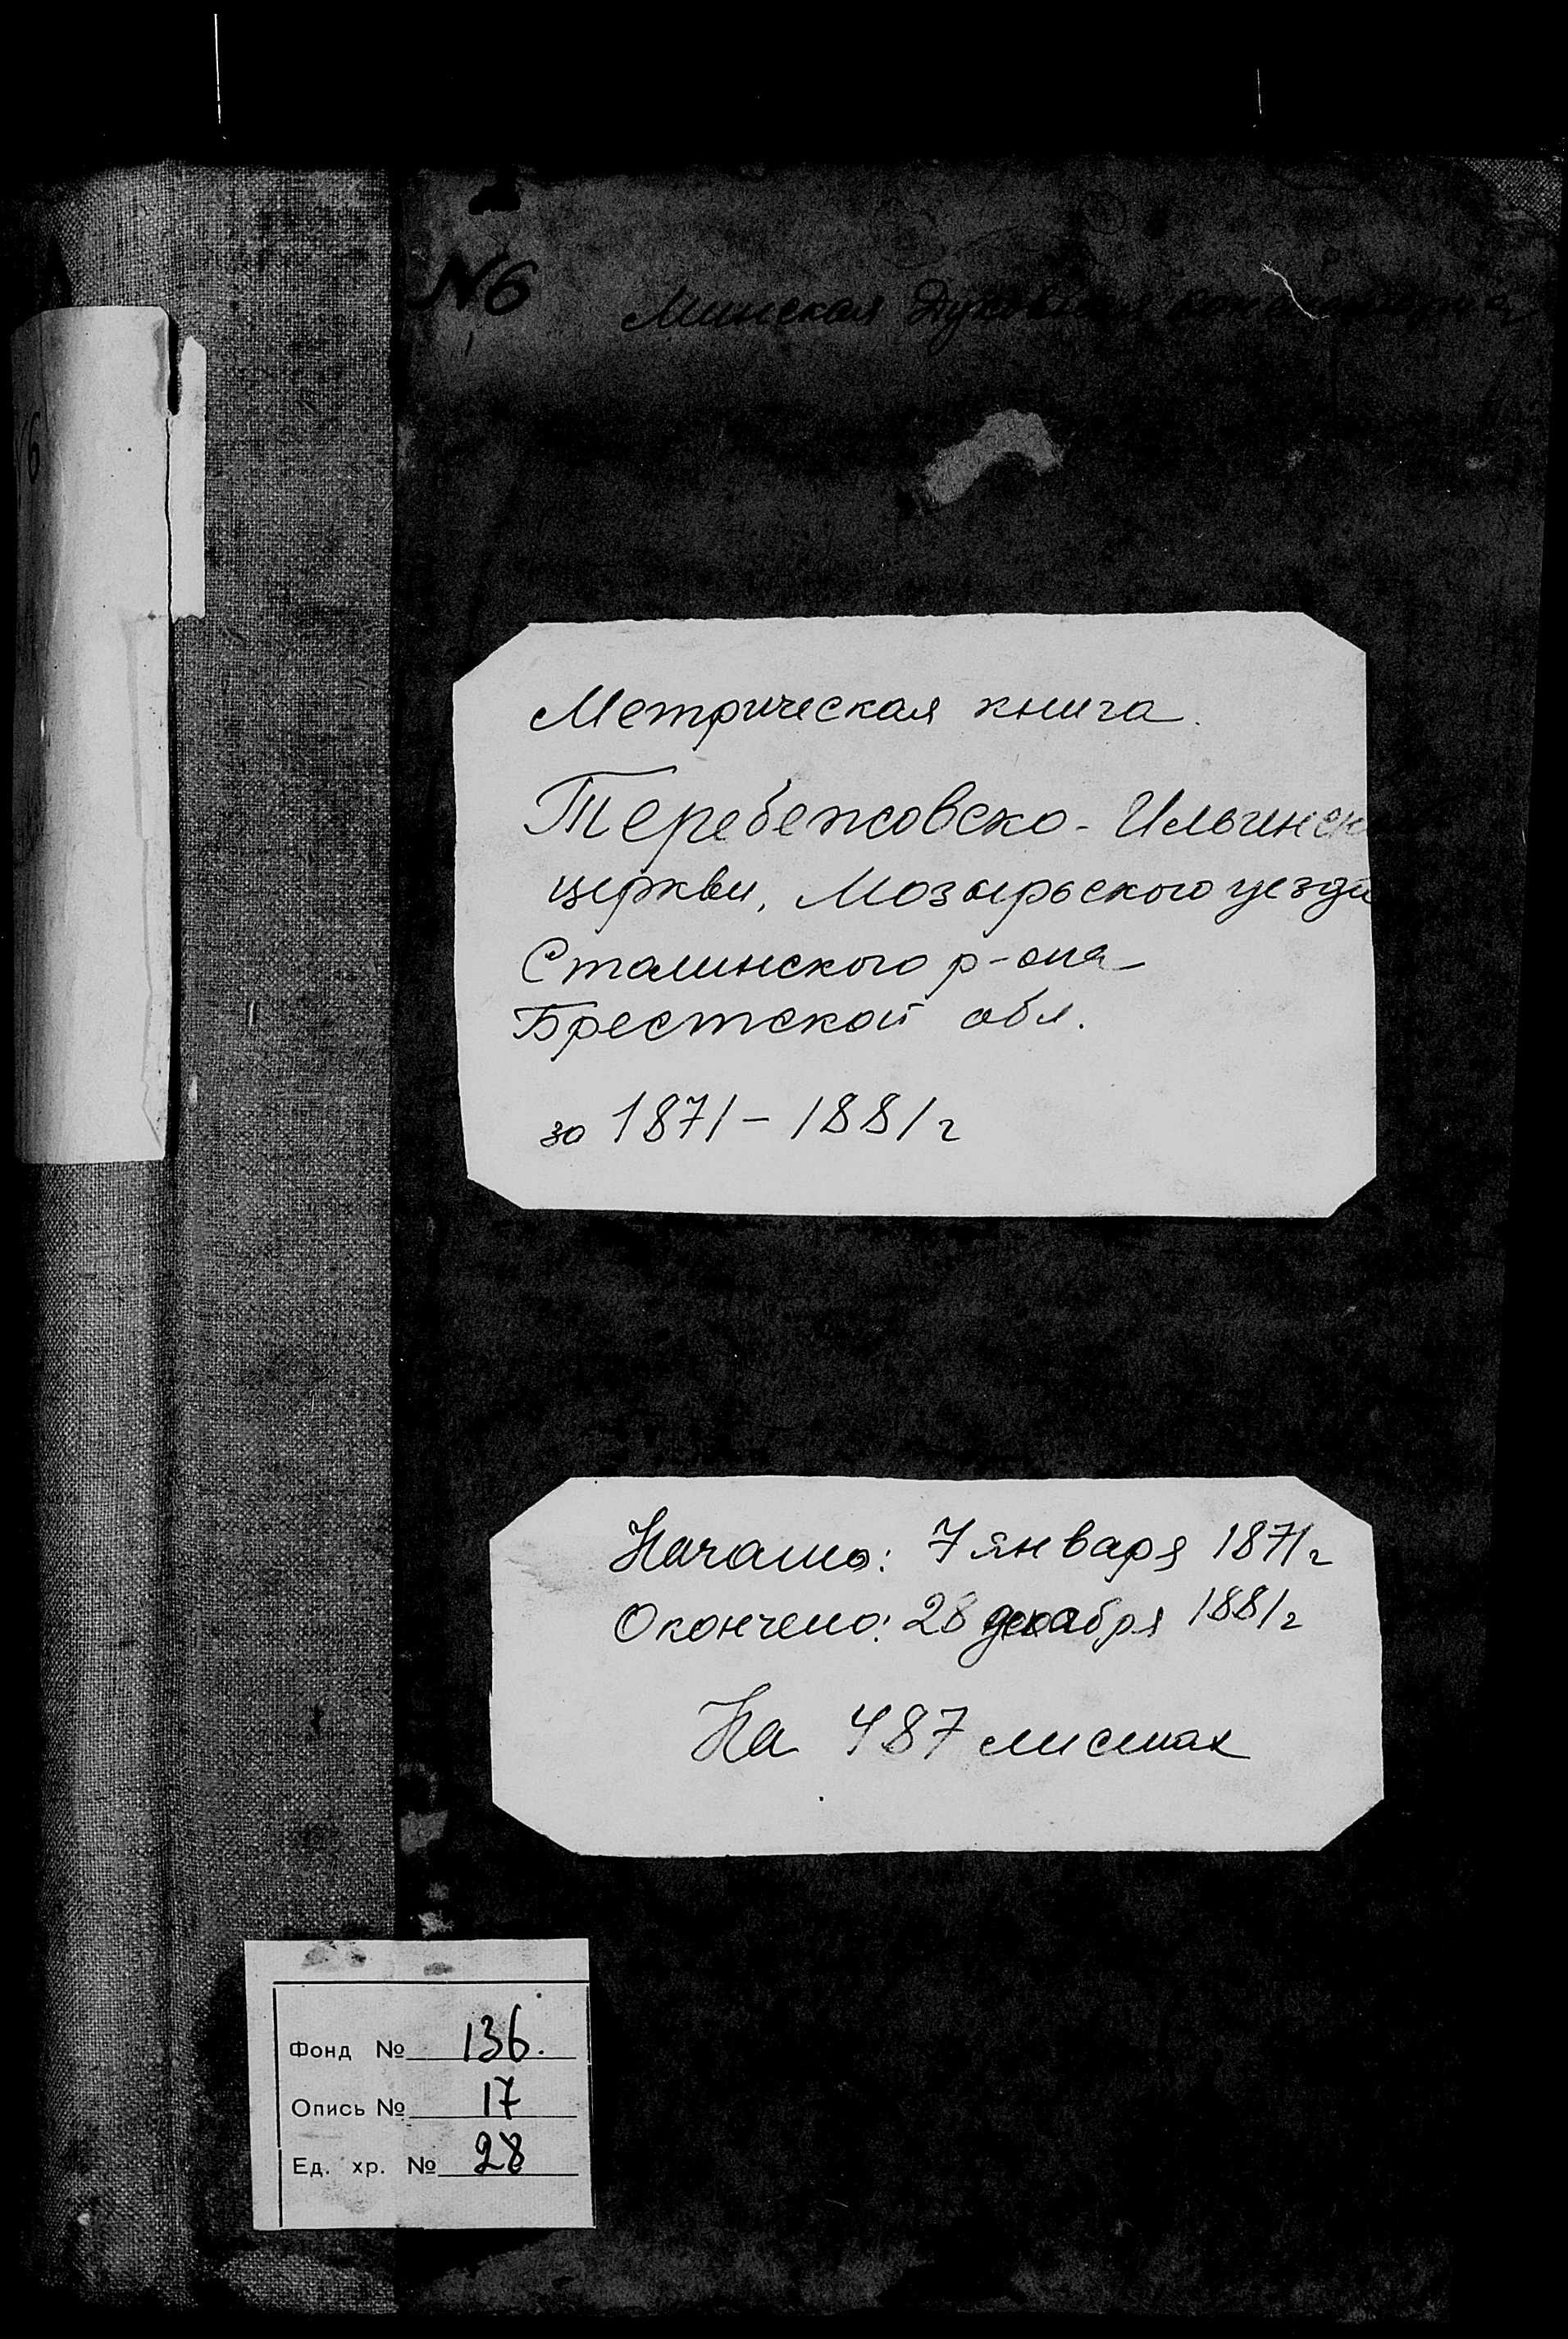 №6
Минская Духовная консистория
6
Метрическая книга.
Теребежовско-Ильинск
церкви, Мозырьского уезда
Столинского р-она
Брестской обл.
за 1871-1881г
Начато: 7 января 1871г
Окончено: 28 декабря 1881г
На 487 листах
Фонд № 136.
Опись № 17
Ед. хр. № 28